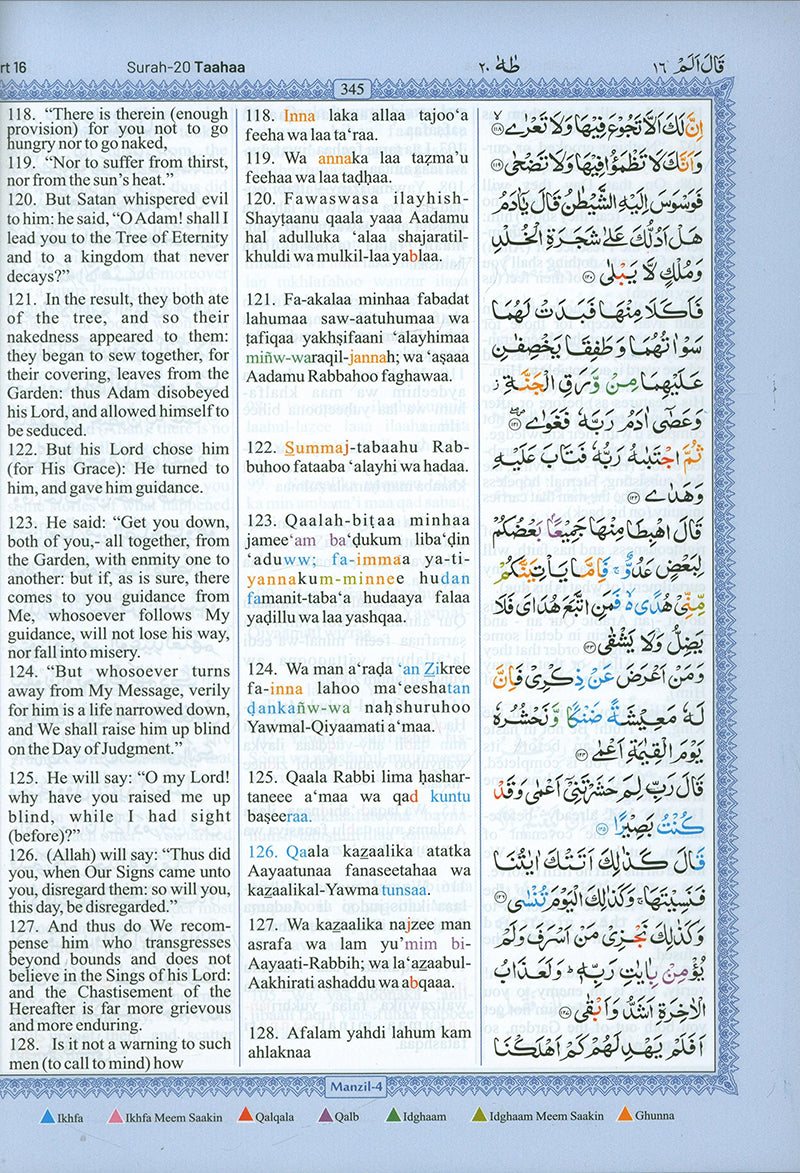 rt 16
Surah-20 Taahaa
طٰهٰ ٢٠
قَالَ اَلَمْ ١٦
345
118. “There is therein (enough
provision) for you not to go
hungry nor to go naked,
119. “Nor to suffer from thirst,
nor from the sun’s heat.”
120. But Satan whispered evil
to him: he said, “O Adam! shall I
lead you to the Tree of Eternity
and to a kingdom that never
decays?”
121. In the result, they both ate
of the tree, and so their
nakedness appeared to them:
they began to sew together, for
their covering, leaves from the
Garden: thus Adam disobeyed
his Lord, and allowed himself to
be seduced.
122. But his Lord chose him
(for His Grace): He turned to
him, and gave him guidance.
123. He said: “Get you down,
both of you,- all together, from
the Garden, with enmity one to
another: but if, as is sure, there
comes to you guidance from
Me, whosoever follows My
guidance, will not lose his way,
nor fall into misery.
124. “But whosoever turns
away from My Message, verily
for him is a life narrowed down,
and We shall raise him up blind
on the Day of Judgment.”
125. He will say: “O my Lord!
why have you raised me up
blind, while I had sight
(before)?”
126. (Allah) will say: “Thus did
you, when Our Signs came unto
you, disregard them: so will you,
this day, be disregarded.”
127. And thus do We recom-
pense him who transgresses
beyond bounds and does not
believe in the Sings of his Lord:
and the Chastisement of the
Hereafter is far more grievous
and more enduring.
128. Is it not a warning to such
men (to call to mind) how
118. Inna laka allaa tajoo‘a
feeha wa laa ta‘raa.
119. Wa annaka laa taẓma’u
feehaa wa laa taḍhaa.
120. Fawaswasa ilayhish-
Shayṭaanu qaala yaaa Aadamu
hal adulluka ‘alaa shajaratil-
khuldi wa mulkil-laa yablaa.
121. Fa-akalaa minhaa fabadat
lahumaa saw-aatuhumaa wa
ṭafiqaa yakhṣifaani ‘alayhimaa
miñw-waraqil-jannah; wa ‘aṣaaa
Aadamu Rabbahoo faghawaa.
122. Summaj-tabaahu Rab-
buhoo fataaba ‘alayhi wa hadaa.
123. Qaalah-biṭaa minhaa
jamee‘am ba‘ḍukum liba‘ḍin
‘aduww; fa-immaa ya-ti-
yannakum-minnee hudan
famanit-taba‘a hudaaya falaa
yaḍillu wa laa yashqaa.
124. Wa man a‘raḍa ‘an Zikree
fa-inna lahoo ma‘eeshatan
ḍankañw-wa naḥshuruhoo
Yawmal-Qiyaamati a‘maa.
125. Qaala Rabbi lima ḥashar-
taneee a‘maa wa qad kuntu
baṣeeraa.
126. Qaala kazaalika atatka
Aayaatunaa fanaseetahaa wa
kazaalikal-Yawma tunsaa.
127. Wa kazaalika najzee man
asrafa wa lam yu’mim bi-
Aayaati-Rabbih; wa la‘azaabul-
Aakhirati ashaddu wa abqaaa.
128. Afalam yahdi lahum kam
ahlaknaa
اِنَّ لَكَ اَلَّا تَجُوْعَ فِيْهَا وَلَا تَعْرٰى ۙ ١١٨
وَاَنَّكَ لَا تَظْمَؤُا فِيْهَا وَلَا تَضْحٰى ١١٩
فَوَسْوَسَ اِلَيْهِ الشَّيْطٰنُ قَالَ يٰۤاٰدَمُ
هَلْ اَدُلُّكَ عَلٰى شَجَرَةِ الْخُلْدِ
وَمُلْكٍ لَّا يَبْلٰى ١٢٠
فَاَكَلَا مِنْهَا فَبَدَتْ لَهُمَا
سَوْاٰتُهُمَا وَطَفِقَا يَخْصِفٰنِ
عَلَيْهِمَا مِنْ وَّرَقِ الْجَنَّةِ ز
وَعَصٰۤى اٰدَمُ رَبَّهٗ فَغَوٰى ١٢١
ثُمَّ اجْتَبٰىهُ رَبُّهٗ فَتَابَ عَلَيْهِ
وَهَدٰى ١٢٢
قَالَ اهْبِطَا مِنْهَا جَمِيْعًۢا بَعْضُكُمْ
لِبَعْضٍ عَدُوٌّ ۚ فَاِمَّا يَاْتِيَنَّكُمْ
مِّنِّيْ هُدًى ۙ فَمَنِ اتَّبَعَ هُدَايَ فَلَا
يَضِلُّ وَلَا يَشْقٰى ١٢٣
وَمَنْ اَعْرَضَ عَنْ ذِكْرِيْ فَاِنَّ
لَهٗ مَعِيْشَةً ضَنْكًا وَّنَحْشُرُهٗ
يَوْمَ الْقِيٰمَةِ اَعْمٰى ١٢٤
قَالَ رَبِّ لِمَ حَشَرْتَنِيْۤ اَعْمٰى وَقَدْ
كُنْتُ بَصِيْرًا ١٢٥
قَالَ كَذٰلِكَ اَتَتْكَ اٰيٰتُنَا
فَنَسِيْتَهَا ۚ وَكَذٰلِكَ الْيَوْمَ تُنْسٰى ١٢٦
وَكَذٰلِكَ نَجْزِيْ مَنْ اَسْرَفَ وَلَمْ
يُؤْمِنْۢ بِاٰيٰتِ رَبِّهٖ ؕ وَلَعَذَابُ
الْاٰخِرَةِ اَشَدُّ وَاَبْقٰى ١٢٧
اَفَلَمْ يَهْدِ لَهُمْ كَمْ اَهْلَكْنَا
Manzil-4
Ikhfa
Ikhfa Meem Saakin
Qalqala
Qalb
Idghaam
Idghaam Meem Saakin
Ghunna